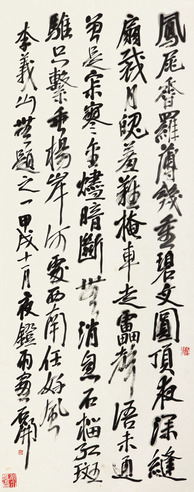 鳳尾香羅薄幾重碧文圓頂夜深縫
扇裁月魄羞難掩車走雷聲語未通
曾是寂寥金燼暗斷無消息石榴紅斑
騅只繫垂楊岸何處西南任好風
李義山無題之一甲戌十月夜鐙雨